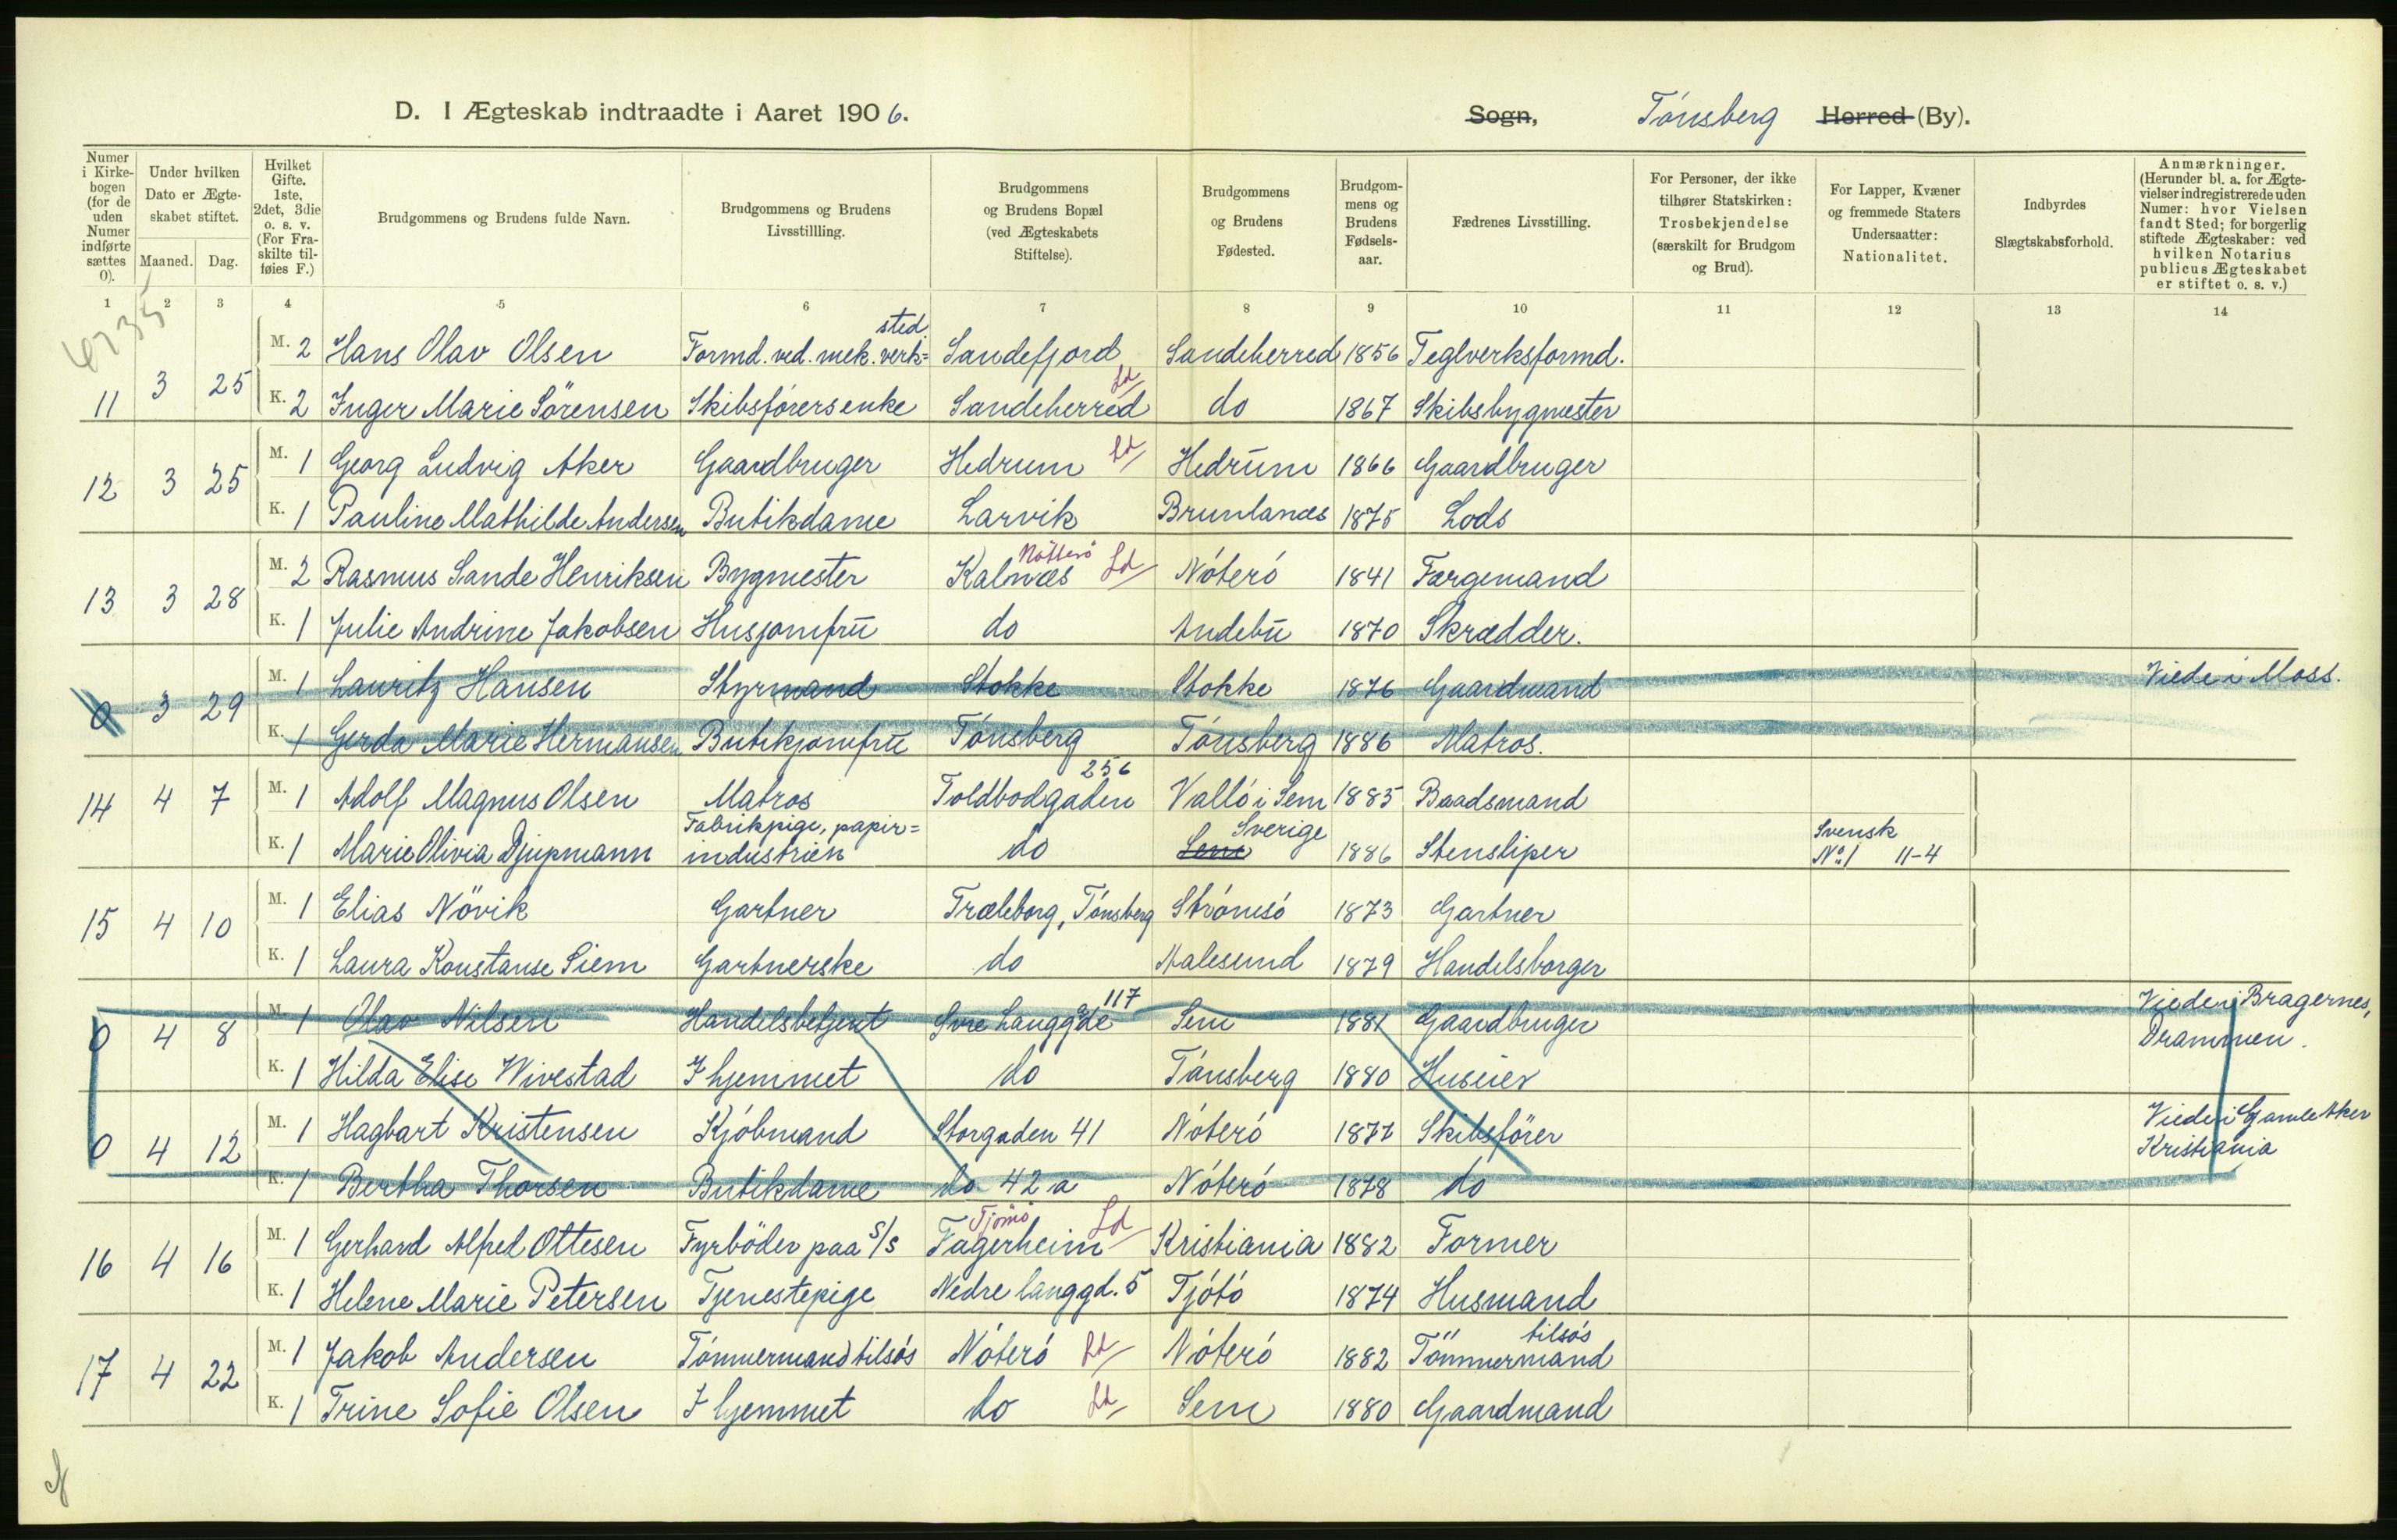 D. I Ægteskab indtraadte i Aaret 1906.
Sogn, Tönsberg Herred (By).
Numer i Kirkebogen (for de uden Numer indførte sættes 0).
Under hvilken Dato er Ægteskabet stiftet.
Maaned. Dag.
Hvilket Gifte. 1ste, 2det, 3die o. s. v. (For Fraskilte tilføies F.)
Brudgommens og Brudens fulde Navn.
Brudgommens og Brudens Livsstillling.
Brudgommens og Brudens Bopæl (ved Ægteskabets Stiftelse).
Brudgommens og Brudens Fødested.
Brudgommens og Brudens Fødselsaar.
Fædrenes Livsstilling.
For Personer, der ikke tilhører Statskirken: Trosbekjendelse (særskilt for Brudgom og Brud).
For Lapper, Kvæner og fremmede Staters Undersaatter: Nationalitet.
Indbyrdes Slægtskabsforhold.
Anmærkninger. (Herunder bl. a. for Ægtevielser indregistrerede uden Numer: hvor Vielsen fandt Sted; for borgerlig stiftede Ægteskaber: ved hvilken Notarius publicus Ægteskabet er stiftet o. s. v.)
1 2 3 4 5 6 7 8 9 10 11 12 13 14
11 3 25 M. 2 Hans Olav Olsen Formd. ved. mek. verk=sted Sandefjord Sandeherred 1856 Teglverksformd.
K. 2 Inger Marie Sörensen Skibsförersenke Sandeherred Ld do 1867 Skibsbygmester
12 3 25 M. 1 Georg Ludvig Aker Gaardbruger Hedrum Ld Hedrum 1866 Gaardbruger
K. 1 Pauline Mathilde Andersen Butikdame Larvik Brunlanæs 1875 Lods
13 3 28 M. 2 Rasmus Sande Henriksen Bygmester Kalnæs Nötterö Ld Nöterö 1841 Færgemand
K. 1 Julie Andrine Jakobsen Husjomfru do Andebu 1870 Skrædder.
0 3 29 M. 1 Lauritz Hansen Styrmand Stokke Stokke 1876 Gaardmand Viede i Moss.
K. 1 Gerda Marie Hermansen Butikjomfru Tönsberg Tönsberg 1886 Matros.
14 4 7 M. 1 Adolf Magnus Olsen Matros Toldbodgaden 256 Vallö i Sem 1885 Baadsmand
K. 1 Marie Olivia Djupmann Fabrikpige, papir=industrien do Sem Sverige 1886 Stensliper Svensk No. 1 11-4
15 4 10 M. 1 Elias Növik Gartner Træleborg, Tönsberg Strömsö 1873 Gartner
K. 1 Laura Konstanse Siem Gartnerske do Aalesund 1879 Handelsborger
0 4 8 M. 1 Olav Nilsen Handelsbetjent Svre Langgde 117 Sem 1881 Gaardbruger Viede i Bragernes, Drammen.
K. 1 Hilda Elise Wivestad I hjemmet do Tönsberg 1880 Huseier
0 4 12 M. 1 Hagbart Kristensen Kjöbmand Storgaden 41 Nöterö 1877 Skibsfører Viede i Gamle Aker Kristiania
K. 1 Bertha Thorsen Butikdame do 42 a Nöterö 1878 do
16 4 16 M. 1 Gerhard Alfred Ottesen Fyrböder paa s/s Fagerheim Tjömö Ld Kristiania 1882 Former
K. 1 Helene Marie Petersen Tjenestepige Nedre langgd. 5 Tjötö 1874 Husmand
17 4 22 M. 1 Jakob Andersen Tömmermand tilsös Nöterö Ld Nöterö 1882 Tömmermand tilsös
K. 1 Trine Sofie Olsen I hjemmet do Ld Sem 1880 Gaardmand